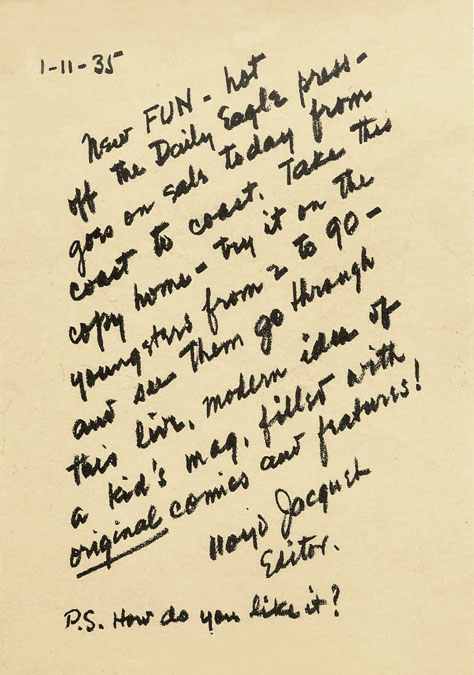 1-11-35
New FUN - hot
off the Daily Eagle press -
goes on sale today from
coast to coast. Take this
copy home - try it on the
youngsters from 2 to 90 -
and see them go through
this live, modern idea of
a kid's mag, filled with
original comics and features!
Lloyd Jacquet
Editor.
P.S. How do you like it?